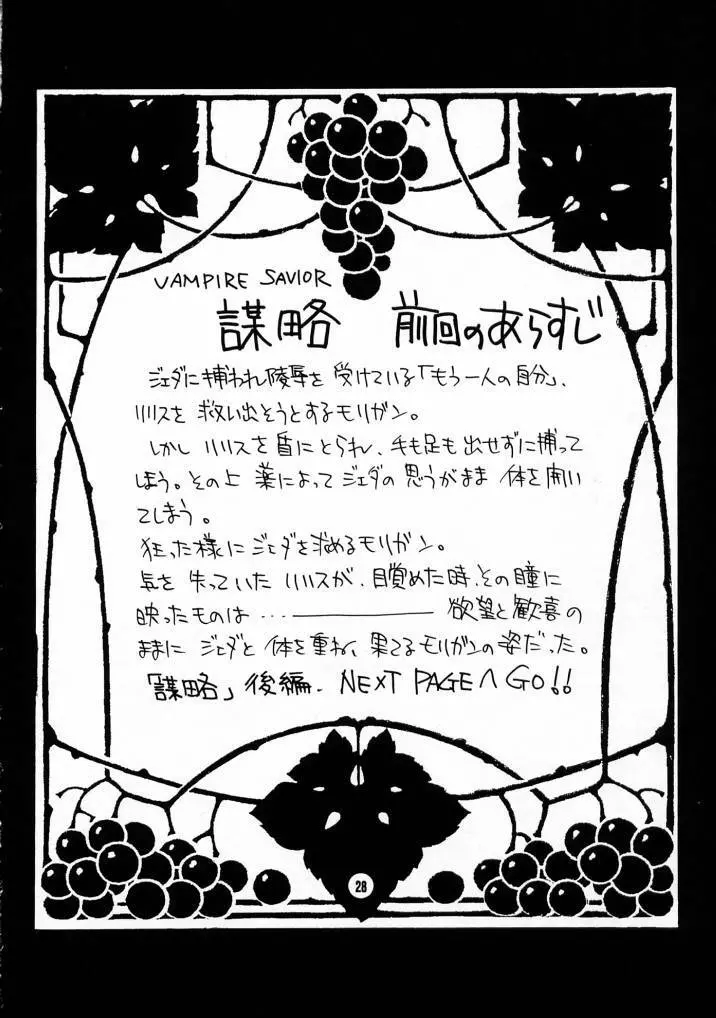 VAMPIRE SAVIOR
謀略 前回のあらすじ
ジェダに捕われ陵辱を受けている「もう一人の自分」、
リリスを救い出そうとするモリガン。
しかしリリスを盾にとられ、手も足も出せずに捕って
しまう。その上薬によってジェダの思うがまま体を開い
てしまう。
狂った様にジェダを求めるモリガン。
気を失っていたリリスが、目覚めた時、その瞳に
映ったものは…――――欲望と歓喜の
ままにジェダと体を重ね、果てるモリガンの姿だった。
「謀略」後編. NEXT PAGEへGO!!
28